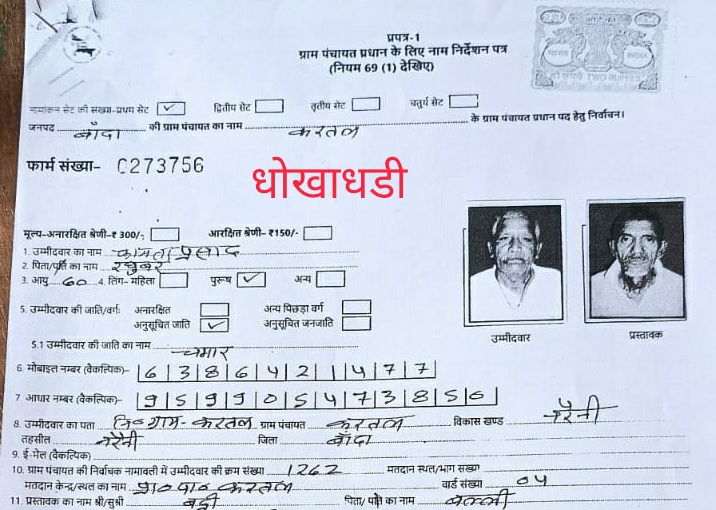 प्रपत्र-1
ग्राम पंचायत प्रधान के लिए नाम निर्देशन पत्र
(नियम 69 (1) देखिए)
TWO RUPEES
नामांकन सेट की संख्या-प्रथम सेट ✓ द्वितीय सेट तृतीय सेट चतुर्थ सेट
जनपद बाँदा की ग्राम पंचायत का नाम करतल के ग्राम पंचायत प्रधान पद हेतु निर्वाचन।
फार्म संख्या- 0273756
धोखाधडी
मूल्य-अनारक्षित श्रेणी-₹ 300/- आरक्षित श्रेणी- ₹150/-
1. उम्मीदवार का नाम कामता प्रसाद
2. पिता/पति का नाम रघुवर
3. आयु 60 4. लिंग- महिला पुरूष ✓ अन्य
5. उम्मीदवार की जाति/वर्गः अनारक्षित अन्य पिछड़ा वर्ग
अनुसूचित जाति ✓ अनुसूचित जनजाति
उम्मीदवार प्रस्तावक
5.1 उम्मीदवार की जाति का नाम चमार
6. मोबाइल नम्बर (वैकल्पिक)- 6386421477
7. आधार नम्बर (वैकल्पिक)- 959905473856
8. उम्मीदवार का पता नि० ग्राम- करतल ग्राम पंचायत करतल विकास खण्ड नरैनी
तहसील नरैनी जिला बाँदा
9. ई-मेल (वैकल्पिक)
10. ग्राम पंचायत की निर्वाचक नामावली में उम्मीदवार की क्रम संख्या 1262 मतदान स्थल/भाग संख्या
मतदान केन्द्र/स्थल का नाम प्रा० पा० करतल वार्ड संख्या 04
11. प्रस्तावक का नाम श्री/सुश्री बद्री पिता/ पति का नाम बल्ली